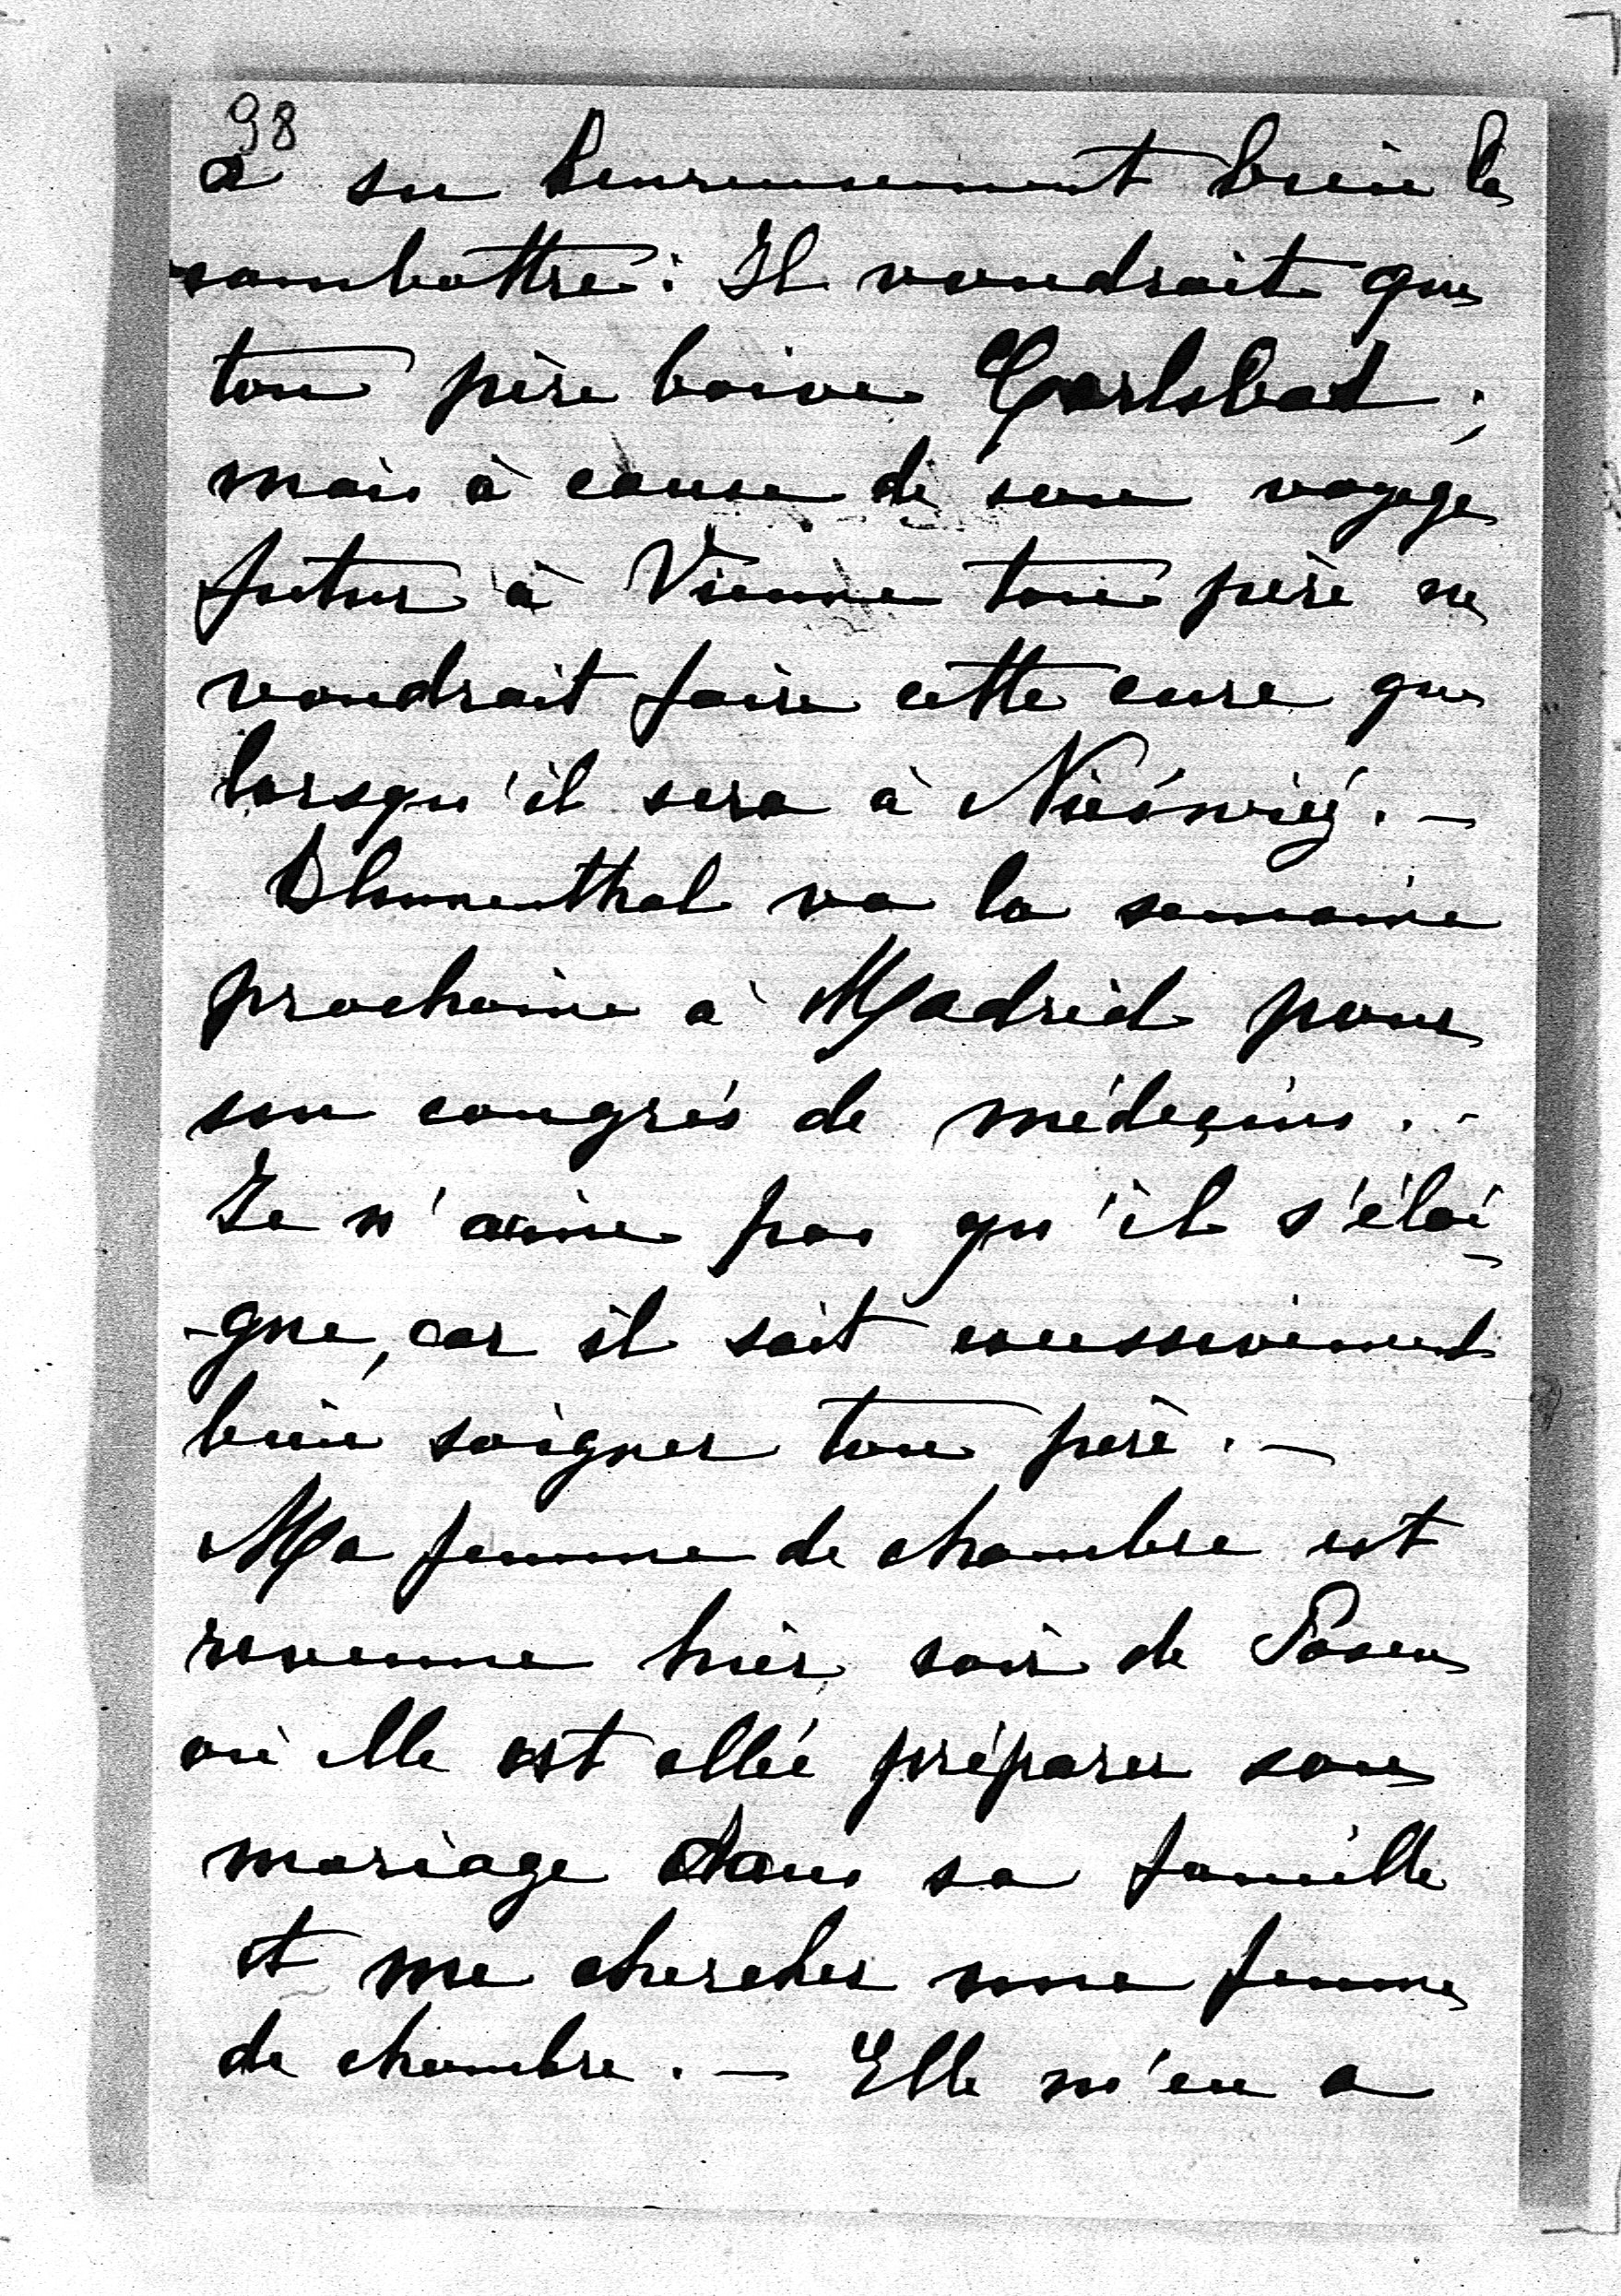 98
a su heureusement bien la
combattre. Il voudrait que
ton père boive Carlsbad;
mais à cause de son voyage
futur à Vienne ton père ne
voudrait faire cette cure que
lorsqu'il sera à Nieśwież. —
Blumenthal va la semaine
prochaine à Madrid pour
son congrès de médeçins. -
Je n'aime pas qu'il s'éloi-
-gne, car il sait excessivement
bien soigner ton père. —
Ma femme de chambre est
revenue hier soir de Posen
où elle est allée préparer son
mariage dans sa famille
et me chercher une femme
de chambre. — Elle m'en a